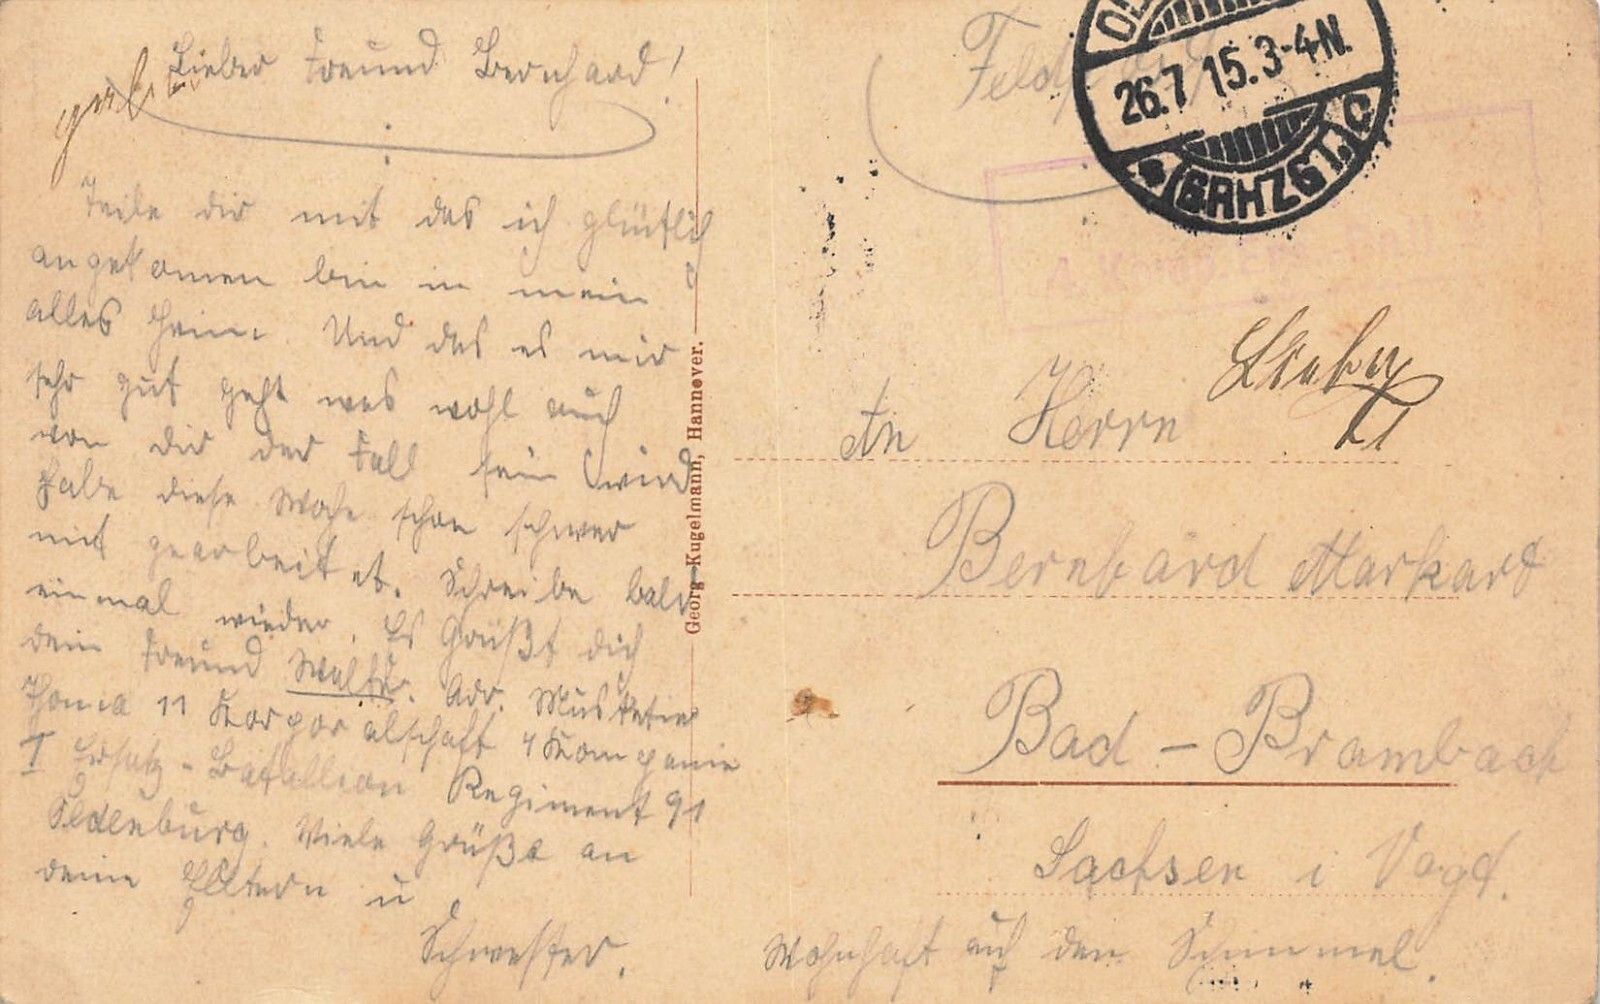 Lieber Freund Bernhard!
Teile dir mit das ich glücklich
angekomen bin in mein
altes Heim. Und das es mir
sehr gut geht was wohl auch
von dir der Fall sein wird
Habe diese Woche schon schwer
mit gearbeitet. Schreibe bald
einmal wieder. Es Grüßt dich
dein Freund Walter. Adr. Musketier
11 Korporalschaft 4 Kompanie
I Ersatz-Batallion Regiment 91
Oldenburg. Viele Grüße an
deine Eltern u
Schwester.
Georg Kugelmann, Hannover.
26.7 15. 3-4N.
(GRHZGT.)
An Herrn
Bernhard Markart
Bad-Brambach
Sachsen i Vogt.
Wohnhaft auf den Schimmel.